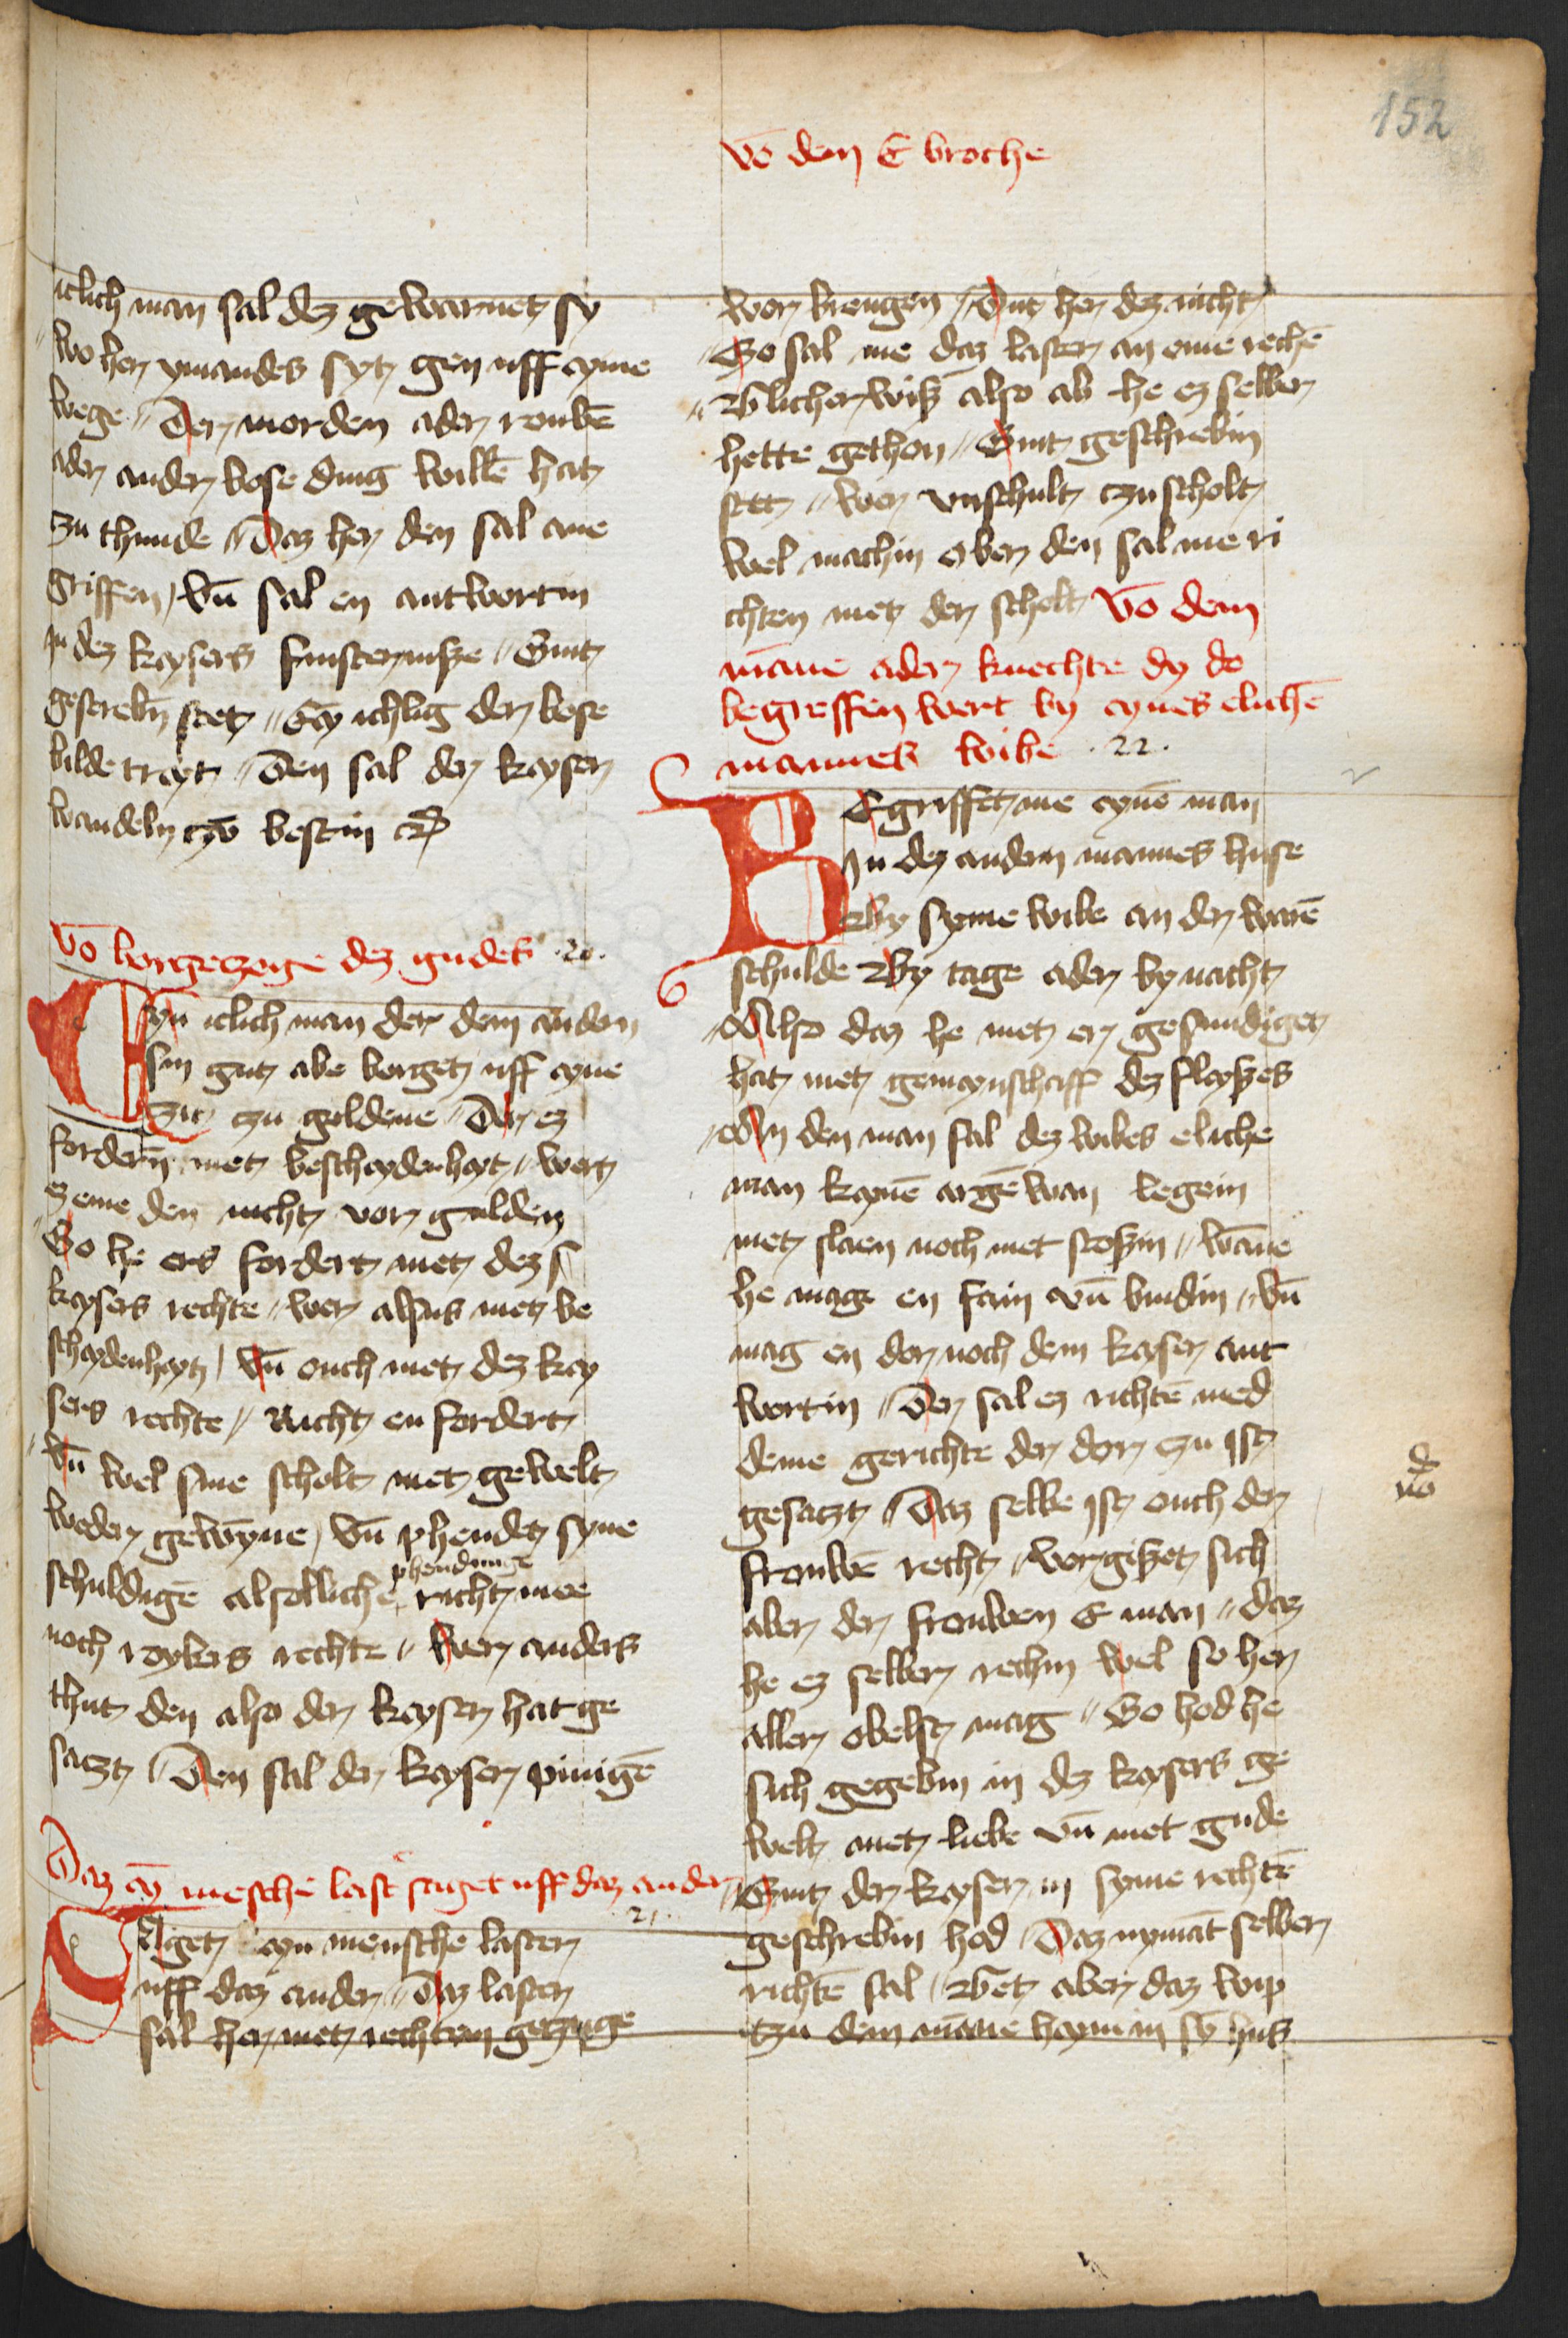 152
Vō dem E broche
iclich man sal dez gewarnet sy
wo her ymandes syt gen uff eyme
wege Der morden ader roubē
ader ander bose ding willē hat
zu thunde Daz her den sal ane
griffen Vn̄ sal en antwortin
In dez keysers finsternisze Sint
gescrebin stet Eȳ ichlig der bose
bilde treyt Den sal der keyser
wandeln czū bestin
Vō borgeczoge dez gudes .20.
Eyn iclich man der dem andern
sin gut abe borget uff eyne
zit zu goldene Der ez
fordern met bescheydenheyt wert
ez eme den nicht vor gulden
So he ers fordert met dez
keysers rechte wer alsus met be
scheydenheyt Vn̄ ouch met dez key
sers rechte Nicht en fordert
Vn̄ wel sine scholt met gewelt
weder gewȳne Vn̄ phendet syne
schuldigē alsolliche phendunge richt me
noch roybers rechte wer anders
thut den also der keyser hat ge
saczt Den sal der keyser pinigē
Daz eȳ mesche last saget uff daz ander
.21.
Saget eyn mensche laster
uff daz ander Daz laster
sal her met rechtem geczuge
vor brengen Dut her dez nicht
So sal me daz laster an eme rechē
Glicher wiß also ab he ez selber
hette gethon Sint geschrebin
stet wer vnschult czu scholt
wel machin ober den sal me ri
chten met der scholt Vō dem
māne ader knechte dy do
begreffen wert by eynes elichē
mannes wibe .22.
BEgriffet me eynē man
In dez andern mannes huse
By syme wibe an der warē
schulde By tage ader by nacht
Also daz he met er gesundiget
hat met gemeynschaff dez fleyßes
An den man sal dez wibes eliche
man keynē argēwan legein
met slaen noch met stoßin wāne
he mage en fain vn̄ bindin Vn̄
mag en dor noch dem keyser ant
wortin Der sal ez richtē med
deme gerichte der dor czu ist
gesaczt Daz selbe ist ouch der
frouwē recht Vorgißet sich
aber der frouwen E man daz
he ez selber rechin wel so her
aller obelst mag So hod he
sich gegebin in dez keysers ge
welt met liebe vn̄ met gude
Sint der keyser in syme rechtē
geschrebin hod Daz nymāt selber
richtē sal Bet aber daz wip
tzu dem māne heym in sȳ hus